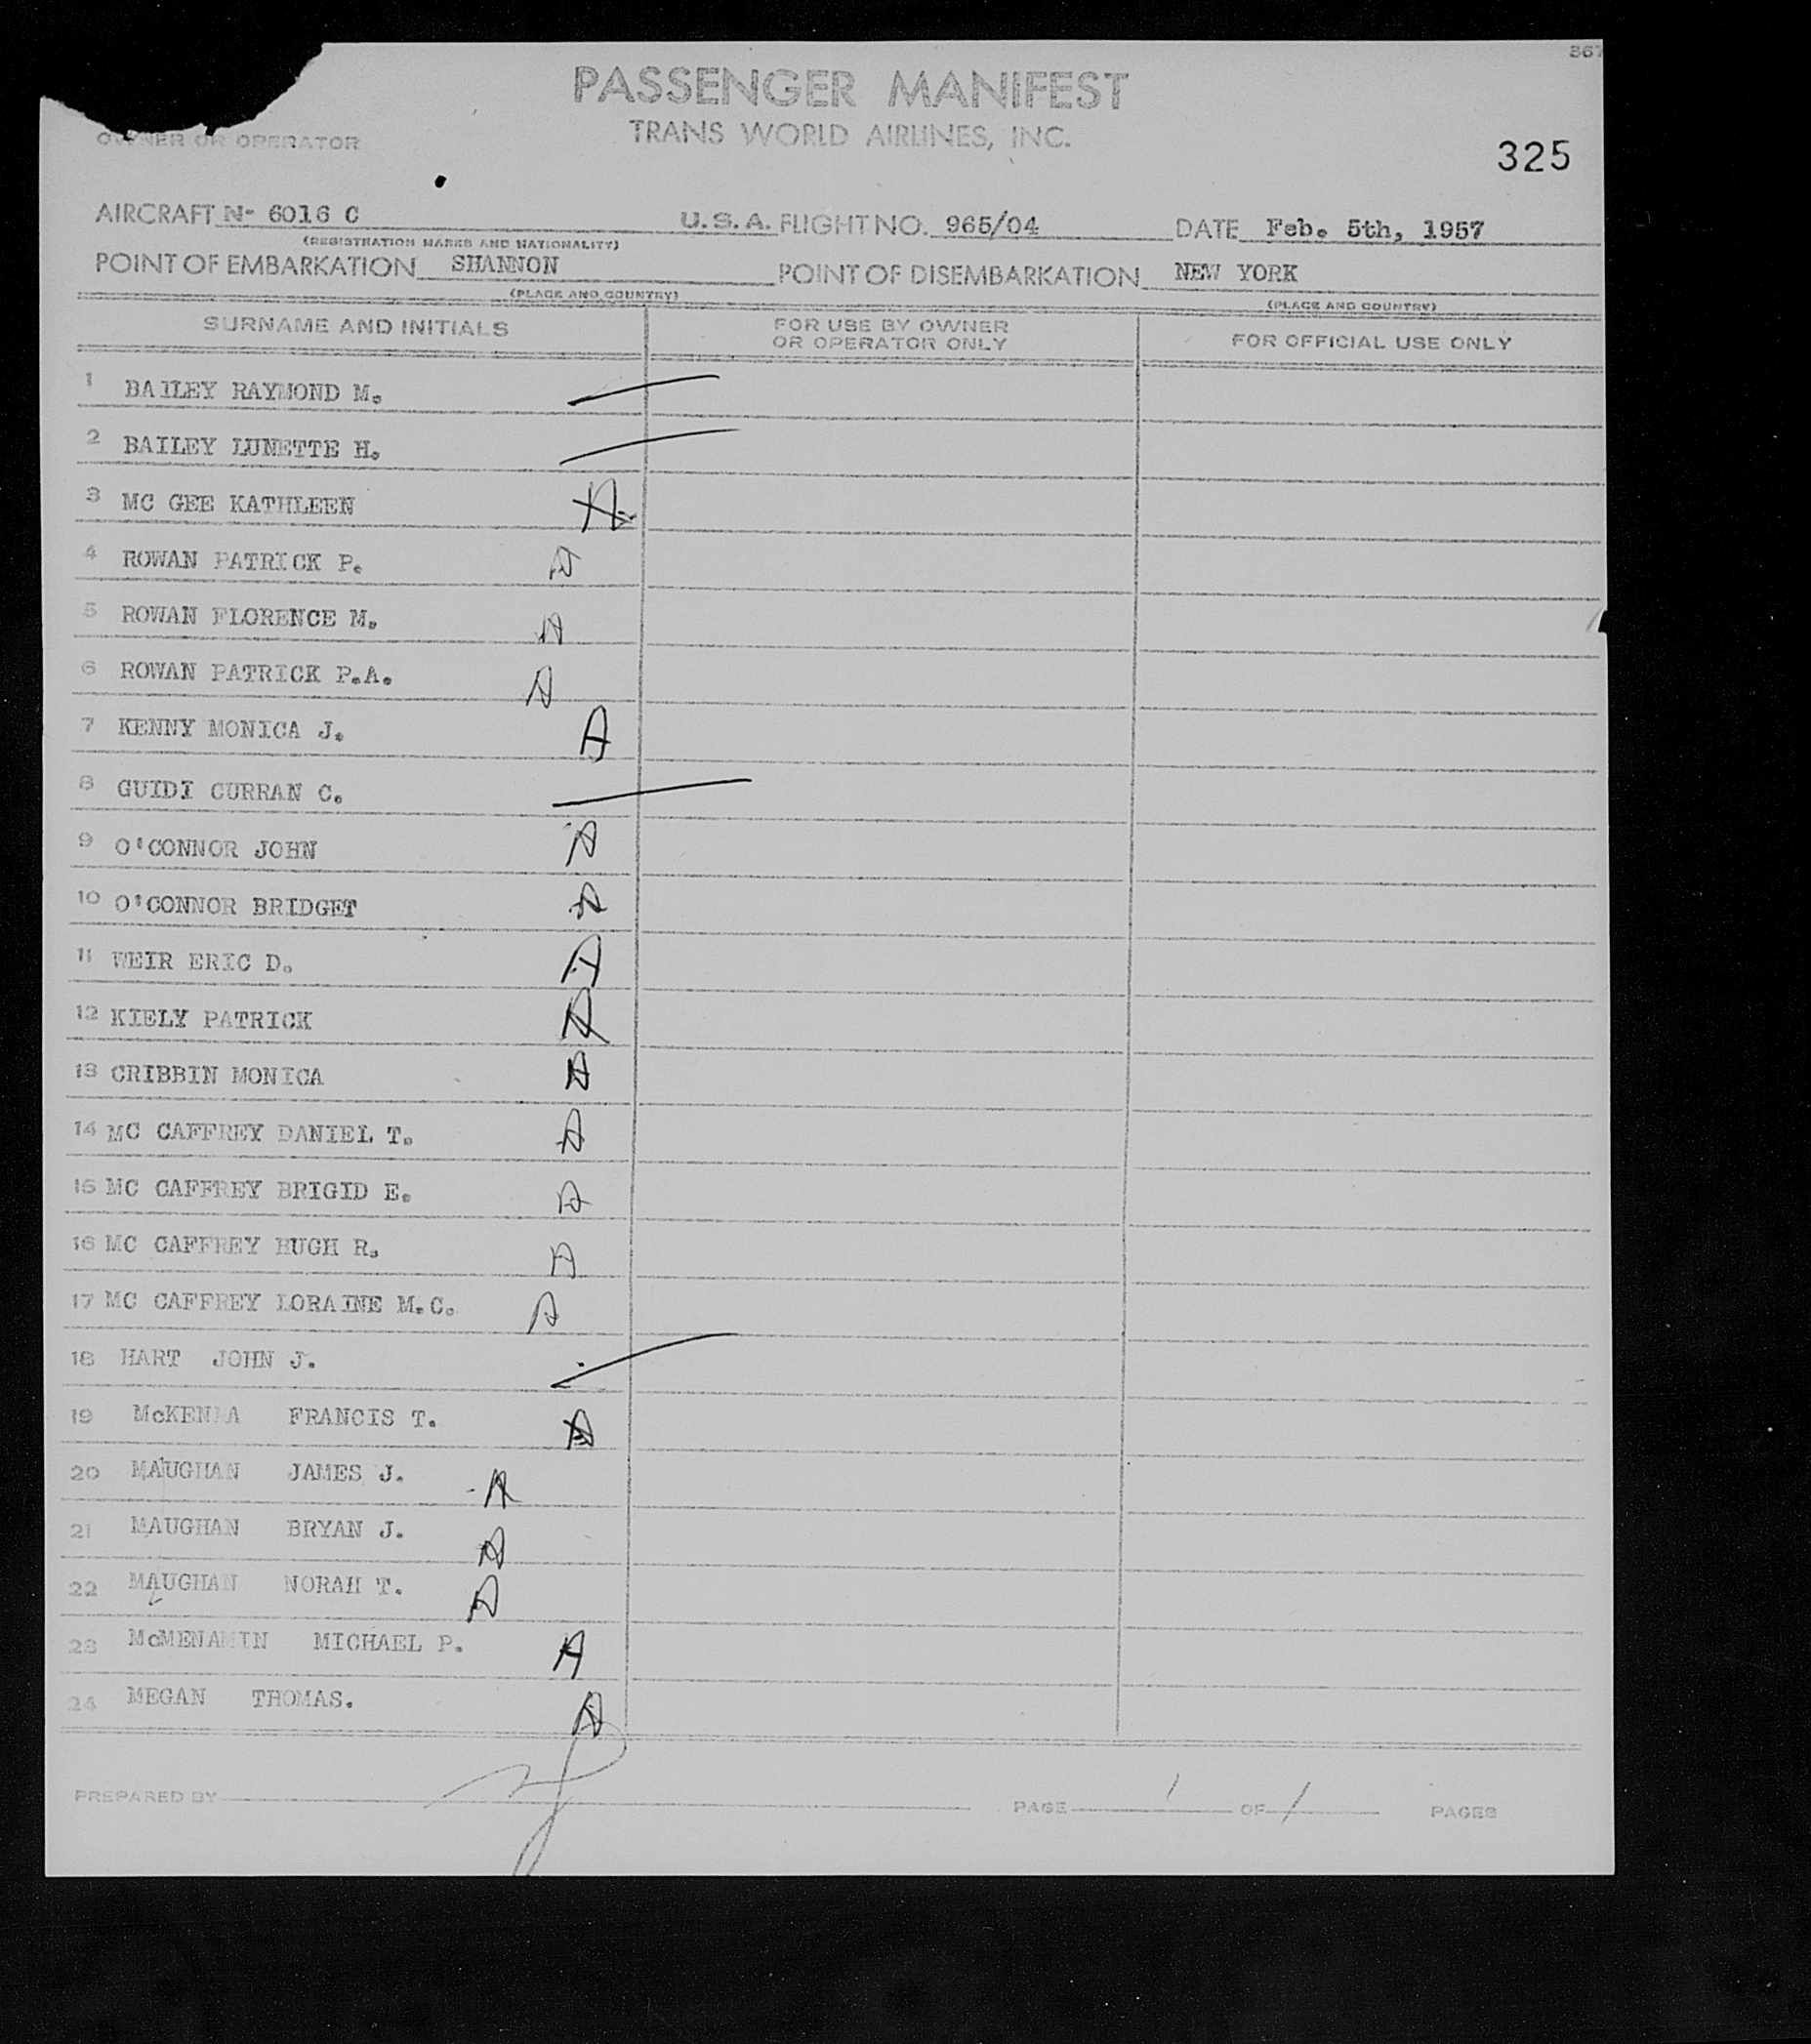 367
PASSENGER MANIFEST
OWNER OR OPERATOR TRANS WORLD AIRLINES, INC.
325
AIRCRAFT N- 6016 C U.S.A. FLIGHT NO. 965/04 DATE Feb. 5th, 1957
(REGISTRATION MARKS AND NATIONALITY)
POINT OF EMBARKATION SHANNON POINT OF DISEMBARKATION NEW YORK
(PLACE AND COUNTRY) (PLACE AND COUNTRY)
SURNAME AND INITIALS FOR USE BY OWNER OR OPERATOR ONLY FOR OFFICIAL USE ONLY
1 BAILEY RAYMOND M.
2 BAILEY LUNETTE H.
3 MC GEE KATHLEEN A
4 ROWAN PATRICK P. A
5 ROWAN FLORENCE M. A
6 ROWAN PATRICK P.A. A
7 KENNY MONICA J. A
8 GUIDI CURRAN C.
9 O'CONNOR JOHN A
10 O'CONNOR BRIDGET A
11 WEIR ERIC D. A
12 KIELY PATRICK A
13 CRIBBIN MONICA A
14 MC CAFFREY DANIEL T. A
15 MC CAFFREY BRIGID E. A
16 MC CAFFREY HUGH R. A
17 MC CAFFREY LORAINE M.C. A
18 HART JOHN J.
19 McKENNA FRANCIS T. A
20 MAUGHAN JAMES J. A
21 MAUGHAN BRYAN J. A
22 MAUGHAN NORAH T. A
23 McMENAMIN MICHAEL P. A
24 MEGAN THOMAS. A
PREPARED BY PAGE 1 OF 1 PAGES